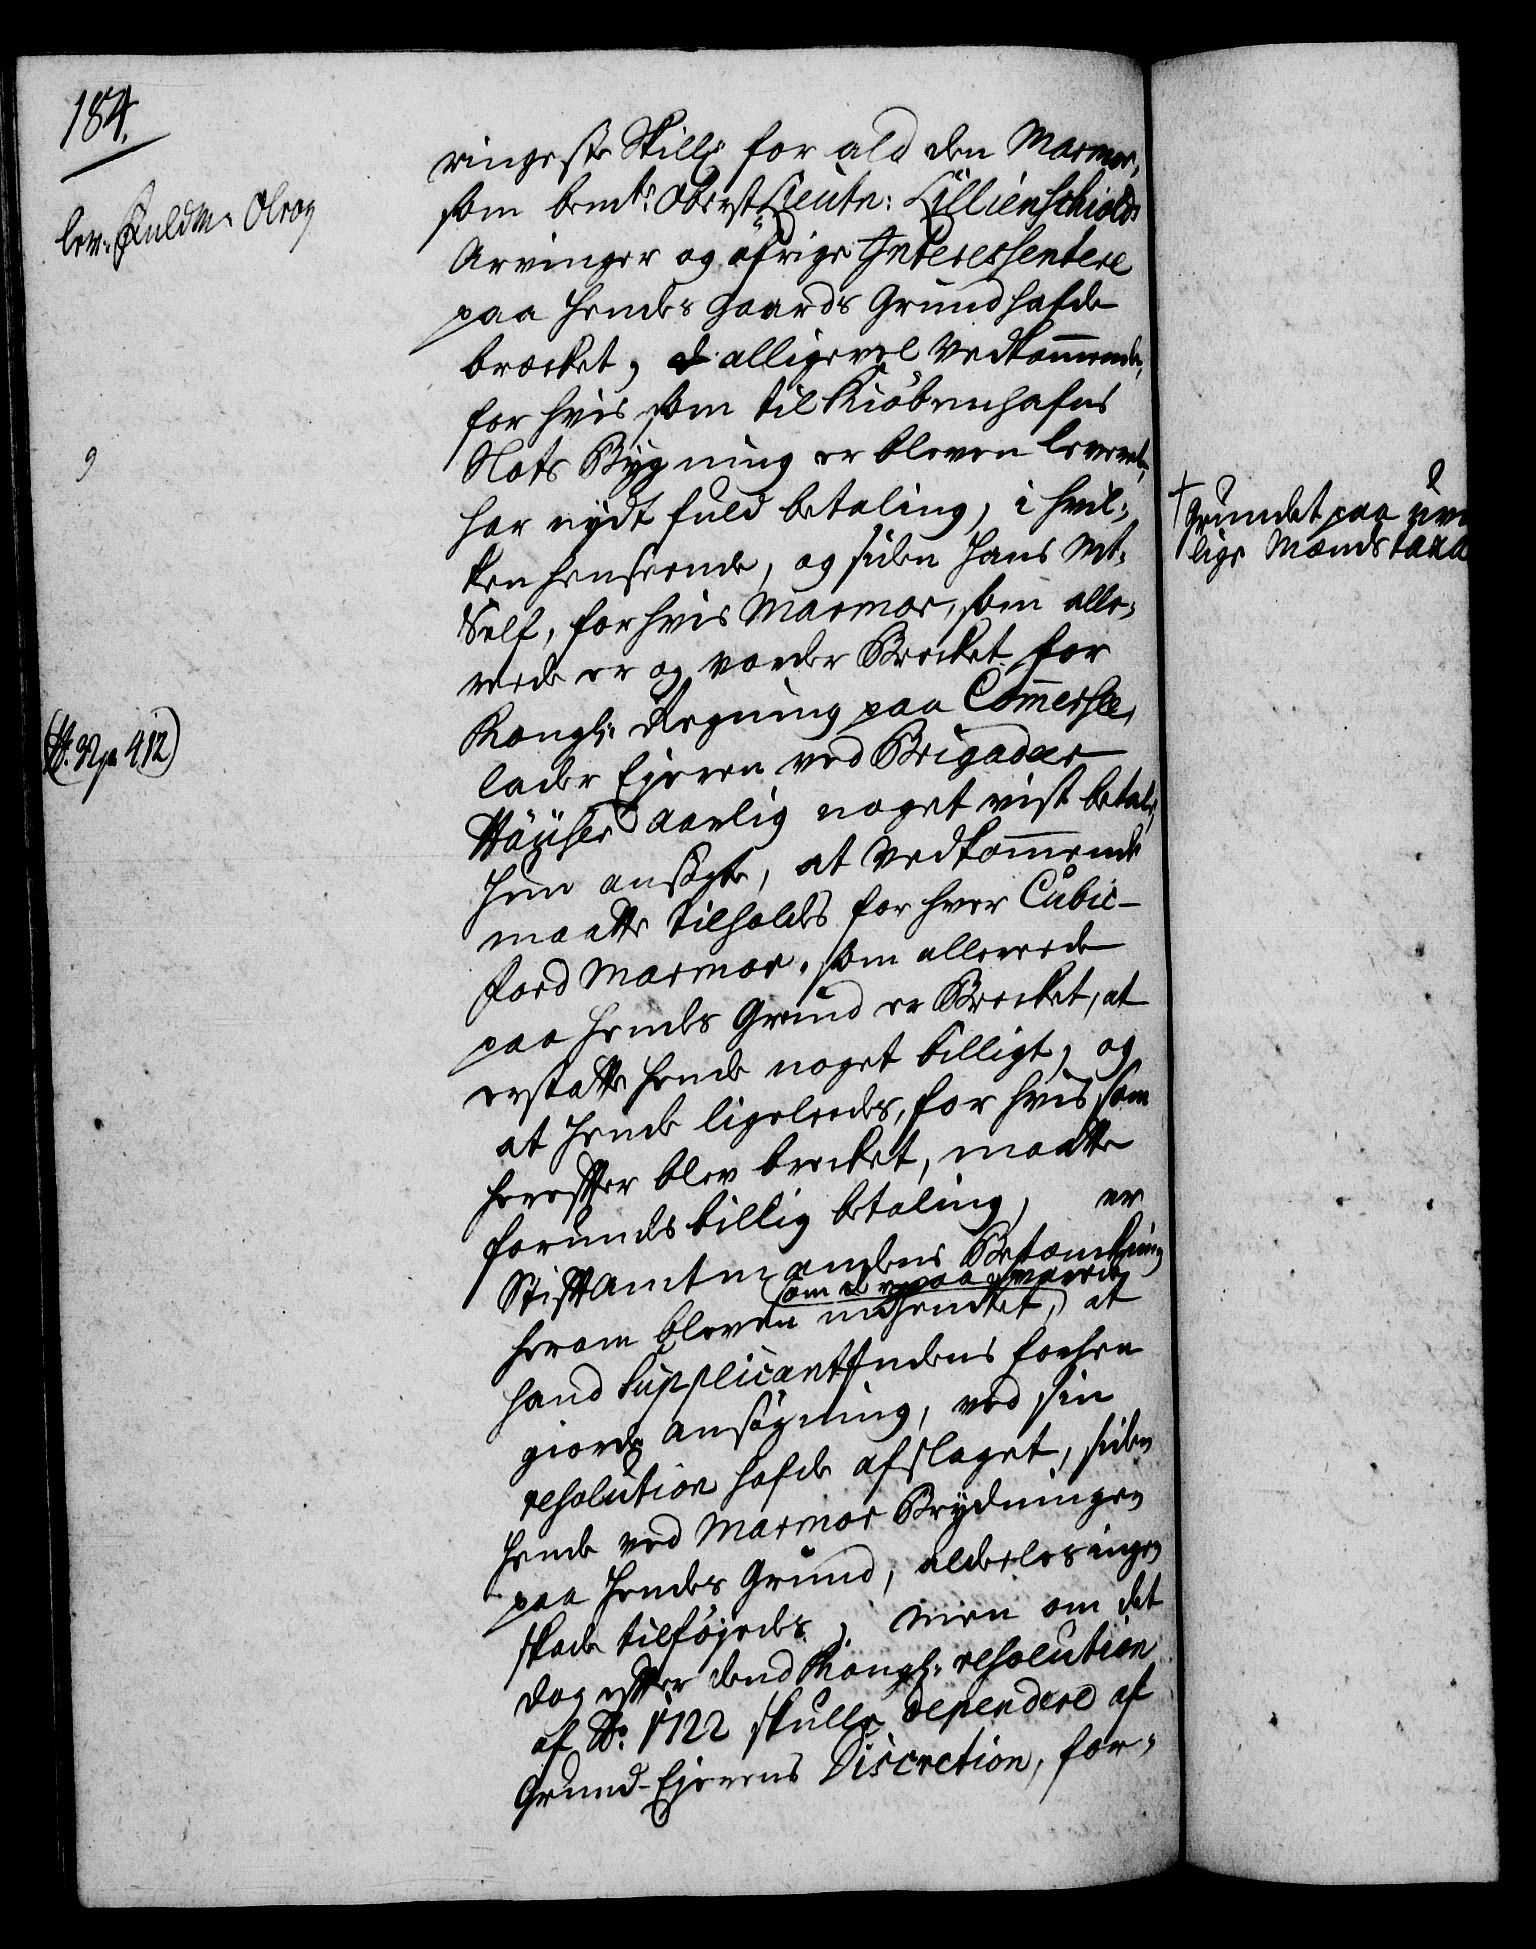 184.
lev: Fuldm: Olrog
ringeste Skill: for ald den Marmor,
som bemte: Oberst Lieutn: Lillienschiolds
Arvinger og öfrige Interessentere
paa hendes Gaards Grund hafde
brocket, alligevel Vedkommende,
for hvis som til Kiöbenhafns
Slots Bygning er bleven leveret,
har nydt fuld betaling, i hvil-
ken henseende, og siden Hans Mt:
Self, for hvis Marmor, som alle-
rede er og vorder Brocket for
Kongl: Regning paa
lader Ejeren ved Brigadeer
Häuser aarlig noget vist betale,
hun ansögte, at Vedkommende
maatte tilholdes for hver Cubic-
food Marmor, som allerede
paa hendes Grund er Brocket, at
erstatte hende noget billigt, og
at hende ligeledes, for hvis som
herefter blev brocket, maatte
forundes billig betaling, er
Stiftamtmandens Betænkning
som derpaa
herom bleven indhendtet, at
hand Supplicantindens forhen
giorde ansögning, ved sin
resolution hafde afslaget, siden
hende ved Marmor Brydningen
paa hendes Grund, alderles ingen
skade tilföjedes, men om det
dog efter dend Kongl: resolution
af Ao: 1722 skulle dependere af
Grund-Ejerens Discretion, for-
(N. pa 412)
† Grundet paa uvi
lige Mænds taxa